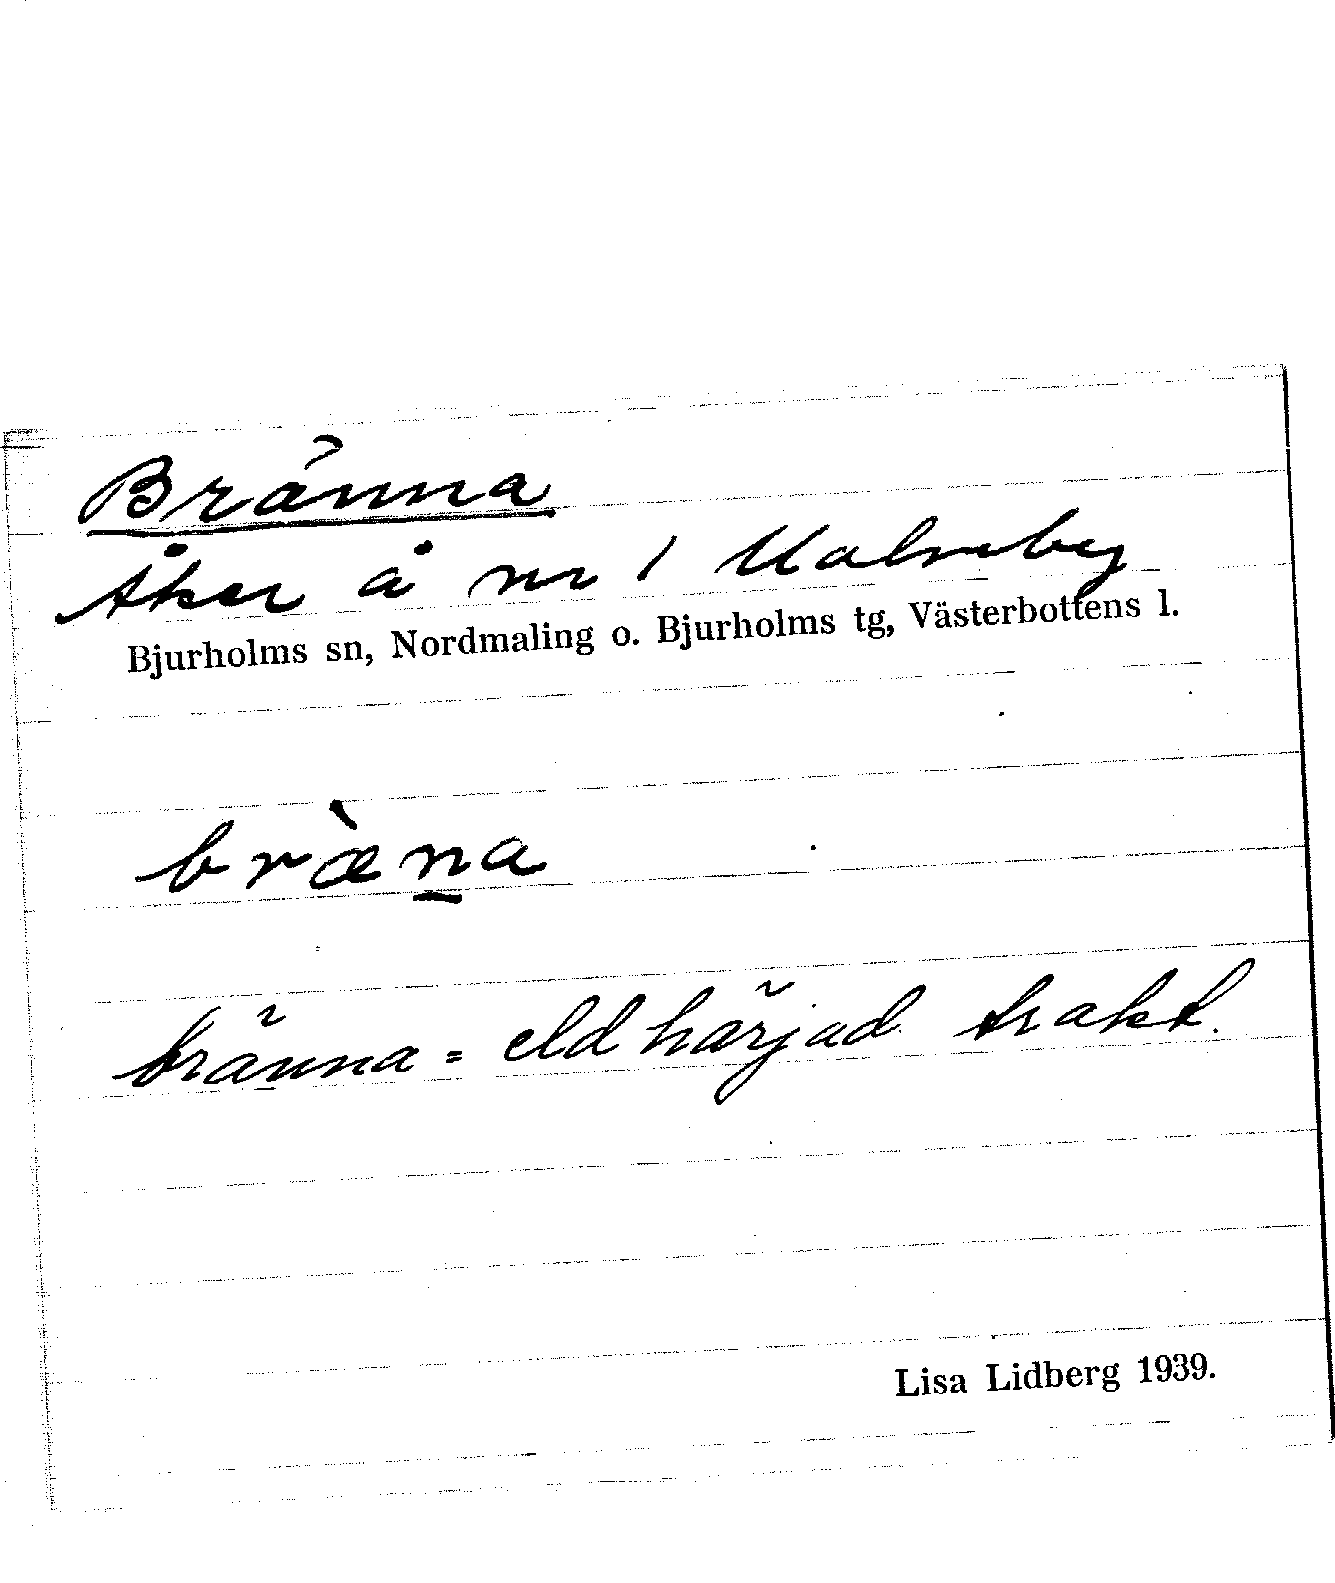 Bränna
Åker å nr 1 Malmeby
Bjurholms sn, Nordmaling o. Bjurholms tg, Västerbottens l.
bræ̀n̲a
bränna = eldhärjad trakt.
Lisa Lidberg 1939.